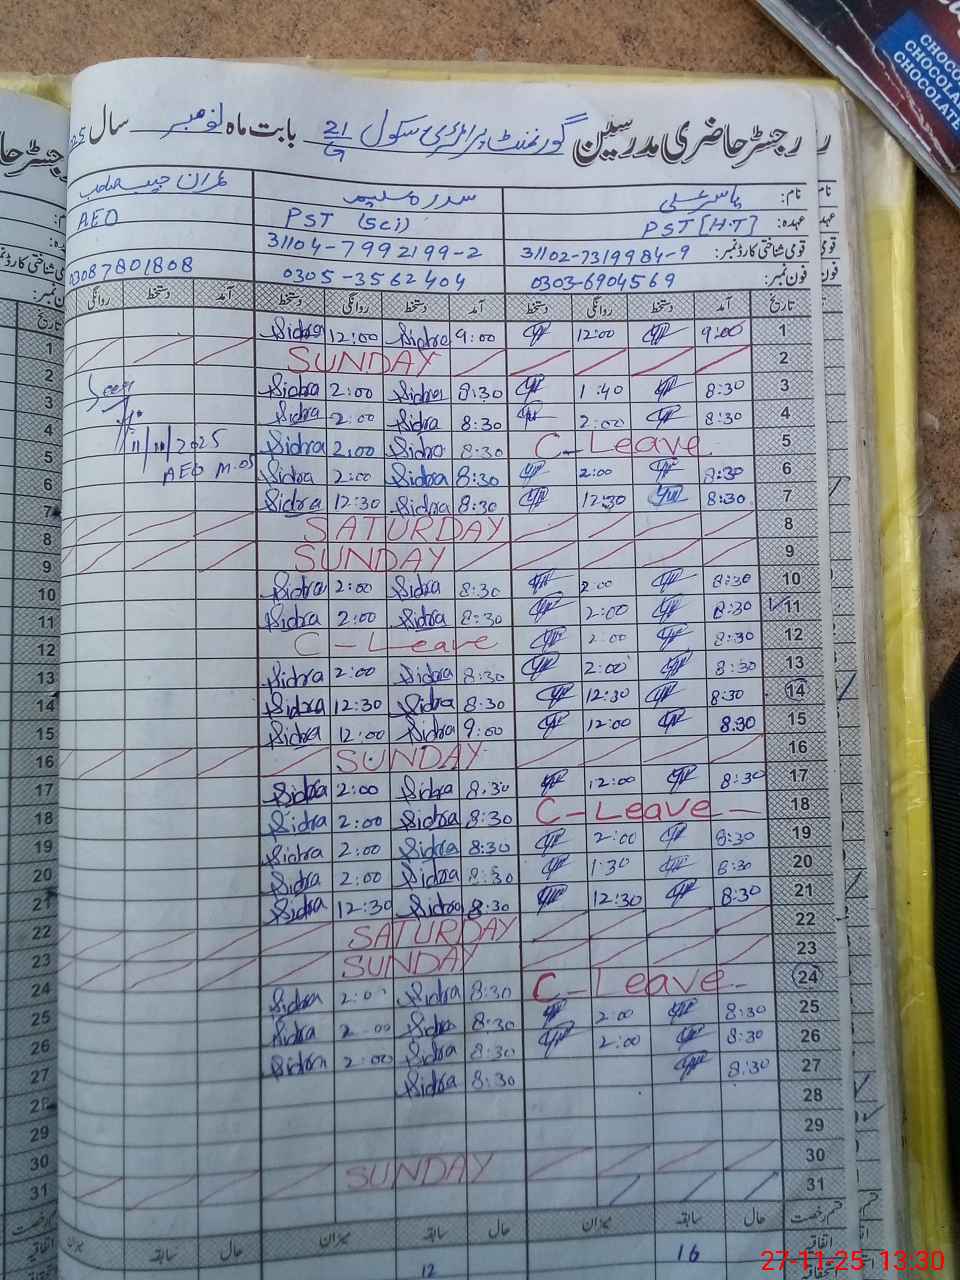 رجسٹر حاضری مدرسین گورنمنٹ پرائمری سکول 21/G بابت ماہ نومبر سال
نام: یاسر علی سدرہ سلیم عمران حبیب صاحب
عہدہ: PST [H.T] PST (Sci) AEO
قومی شناختی کارڈ نمبر: 31102-7319984-9 31104-7992199-2
فون نمبر: 0303-6904569 0305-3562404 03087801808
تاریخ آمد دستخط روانگی دستخط آمد دستخط روانگی دستخط آمد دستخط روانگی
1 9:00 12:00 9:00 Sidra 12:00 Sidra
2 SUNDAY
3 8:30 1:40 8:30 Sidra 2:00 Sidra
4 8:30 2:00 8:30 Sidra 2:00 Sidra
5 C-Leave 8:30 Sidra 2:00 Sidra 11/11/2025
6 8:30 2:00 8:30 Sidra 2:00 Sidra AEO
7 8:30 12:30 8:30 Sidra 12:30 Sidra
8 SATURDAY
9 SUNDAY
10 8:30 2:00 8:30 Sidra 2:00 Sidra
11 8:30 2:00 8:30 Sidra 2:00 Sidra
12 8:30 2:00 C-Leave
13 8:30 2:00 8:30 Sidra 2:00 Sidra
14 8:30 12:30 8:30 Sidra 12:30 Sidra
15 8:30 12:00 9:00 Sidra 12:00 Sidra
16 SUNDAY
17 8:30 12:00 8:30 Sidra 2:00 Sidra
18 C-Leave 8:30 Sidra 2:00 Sidra
19 8:30 2:00 8:30 Sidra 2:00 Sidra
20 8:30 1:30 8:30 Sidra 2:00 Sidra
21 8:30 12:30 8:30 Sidra 12:30 Sidra
22 SATURDAY
23 SUNDAY
24 C-Leave 8:30 Sidra 2:00 Sidra
25 8:30 2:00 8:30 Sidra 2:00 Sidra
26 8:30 2:00 8:30 Sidra 2:00 Sidra
27 8:30 8:30 Sidra
28
29
30 SUNDAY
31
قسم رخصت حال سابقہ میزان حال سابقہ میزان حال سابقہ میزان
اتفاقیہ 16 12
27-11-25 13:30
CHOCOLATE
CHOCOLATE